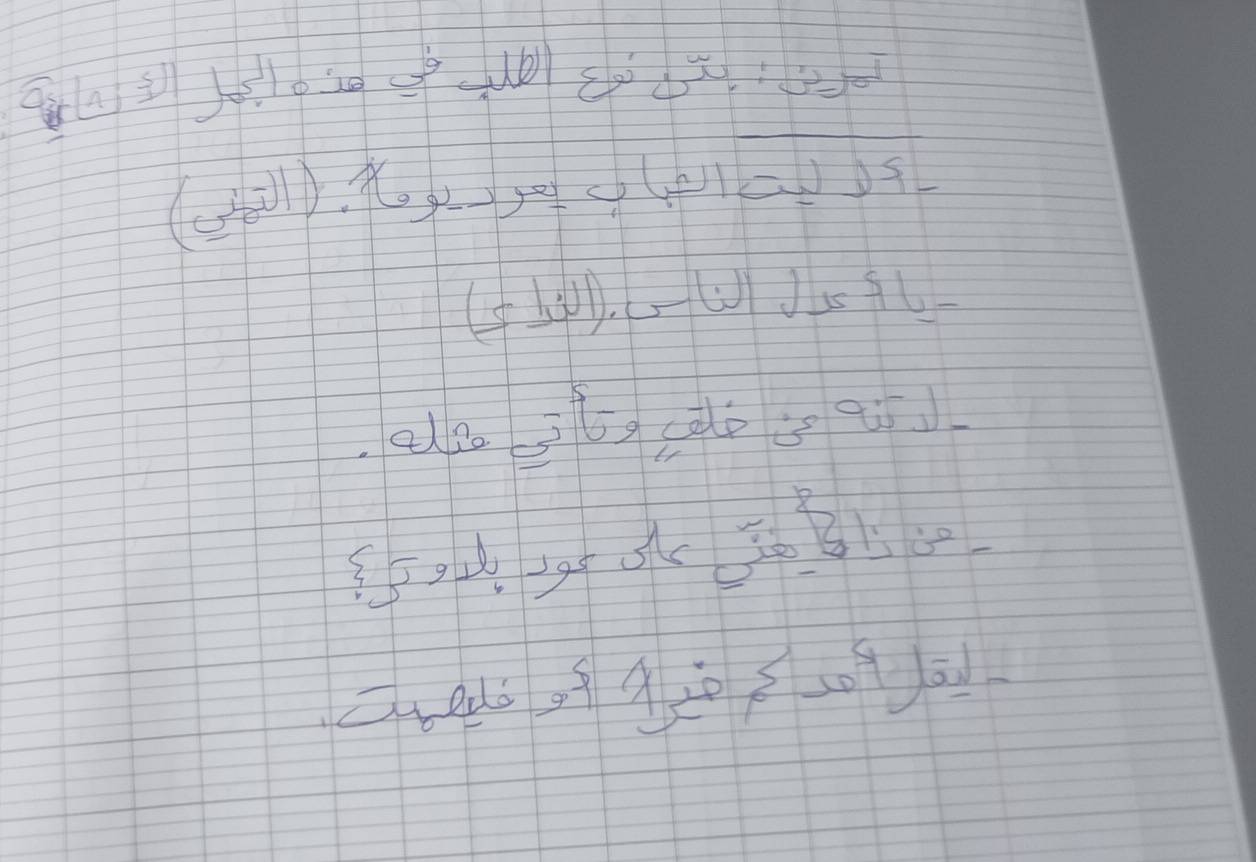 تمرين: بيّن نوع الطلب في هذه الجمل الآتية
- ألا ليت الشباب يعود يوما. (التمني)
- يا أعدل الناس. (النداء)
- لا تنه عن خلق وتأتي مثله.
- من ذا منّي على بلادي؟
- ليقل أحدكم خيرا أو فليصمت.